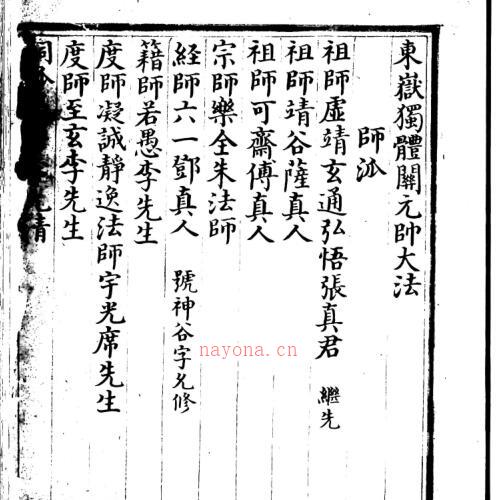 東嶽獨體關元帥大法
師派
祖師虛靖玄通弘悟張真君 繼先
祖師靖谷薩真人
祖師可齋傅真人
宗師樂全朱法師
経師六一鄧真人 號神谷字允修
籍師若愚李先生
度師凝誠靜逸法師宇光席先生
度師至玄李先生
nayona.cn